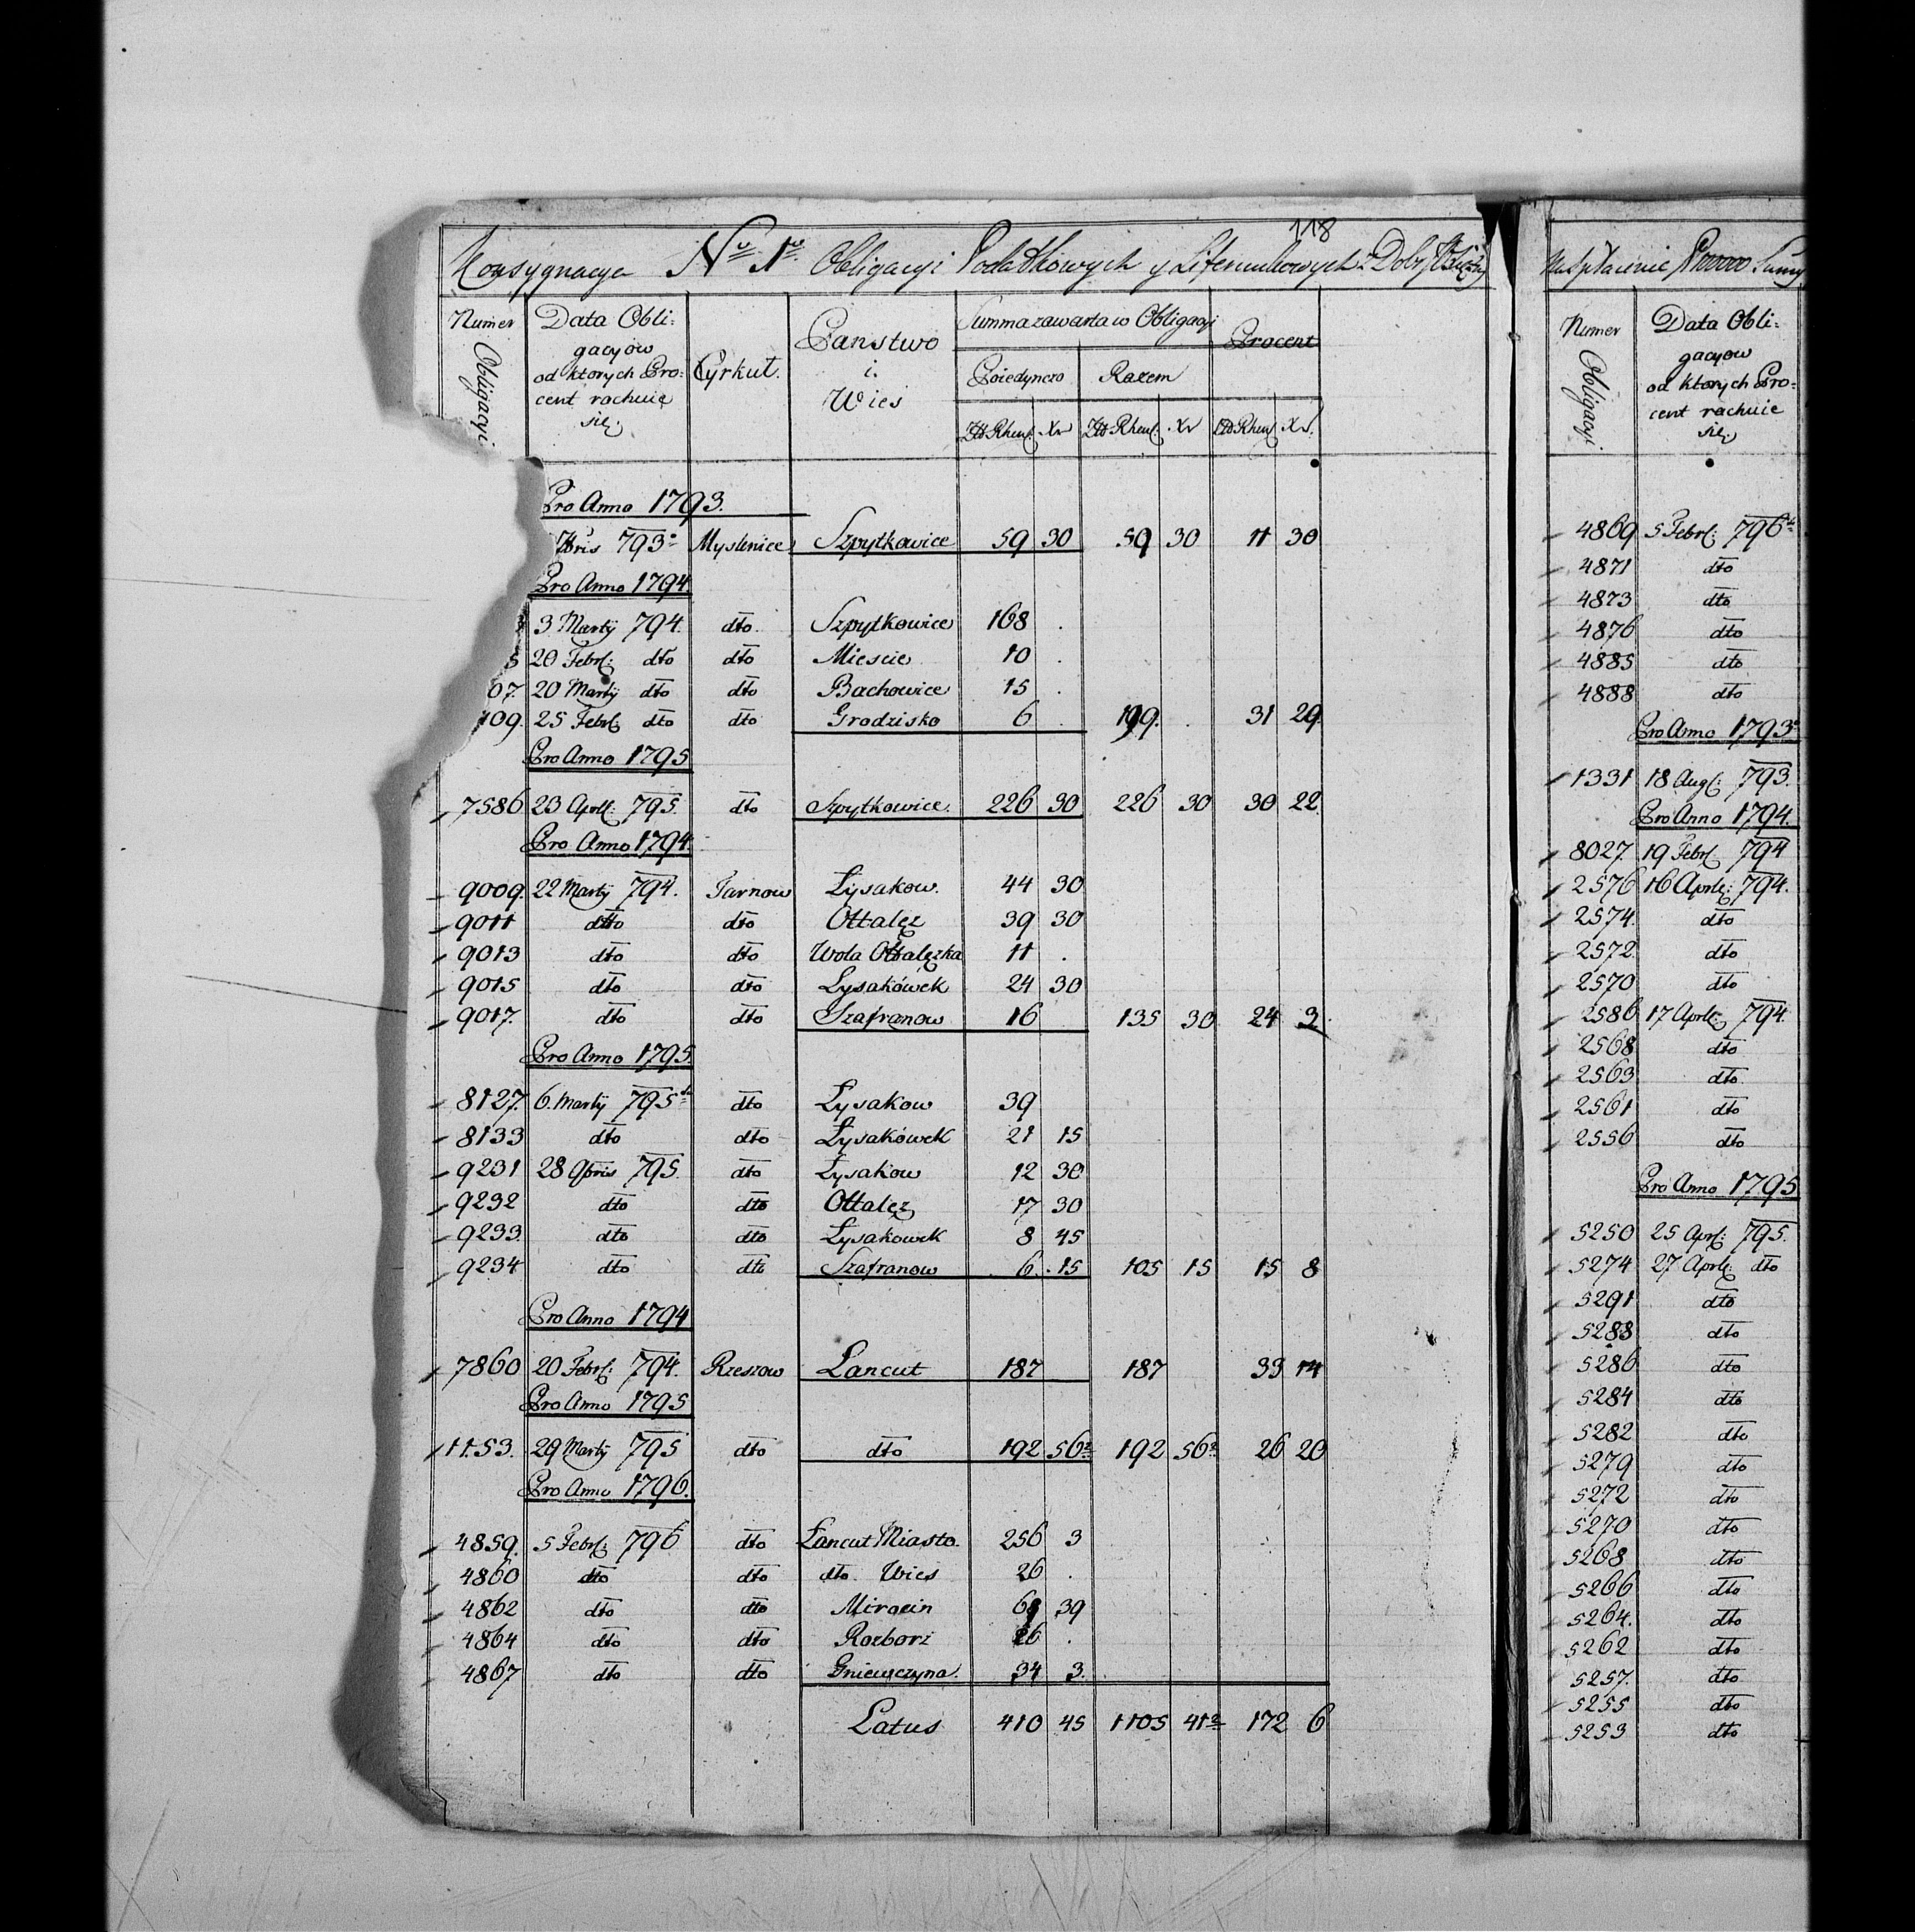 118
Konsygnacya Nro 1mo Obligacyi Podatkowych y Liferunkowych z Dobr
Numer Obligacyi
Data Obli:
gacyow
od ktorych Pro:
cent rachuie
się.
Cyrkuł.
Panstwo
i.
Wies
Summa zawarta w Obligacyi
Poiedynczo
Razem
Procent
Zł Rhens. Xr Zł Rhens. Xr Zł Rhens. Xr.
Pro Anno 1793.
793 Myslenice Szpytkowice 59 30 59 30 11 30
Pro Anno 1794.
3 Martÿ 794. dto. Szpytkowice 168 .
5 20 Febr: dto dto Miescie 10 .
07. 20 Martÿ dto dto Bachowice 15 .
109. 25 Febr: dto dto Grodzisko 6 . 199. . 31 29.
Pro Anno 1795
7586 23 Aprll: 795. dto Szpytkowice. 226 30 226 30 30 22.
Pro Anno 1794.
9009. 22 Martÿ 794. Tarnow Łysakow. 44 30
9011 dto dto Ottalęz 39 30
9013 dto dto Wola Ottalęzka 11 .
9015 dto dto Łysakówek 24 30
9017. dto dto Szafranow 16 135 30 24 3.
Pro Anno 1795.
8127. 6. Martÿ 795 dto Łysakow 39
8133 dto dto Łysakówek 21 15
9231 28 9bris 795. dto Łysakow 12 30
9232 dto dto Ottalęz 17 30
9233. dto dto Łysakowek 8 45
9234 dto dto Szafranow 6. 15 105 15 15 8
Pro Anno 1794
7860 20 Febr: 794. Rzeszow Łancut 187 187 33 14
Pro Anno 1795
1153. 29 Martÿ 795 dto dto 192 56 2 192 56 2 26 20
Pro Anno 1796.
4859. 5 Febr: 796 dto Łancut Miasto. 256 3
4860 dto dto dto. Wies 26 .
4862 dto dto Mirocin 39
4864 dto dto Rozborz .
4867 dto dto Gniewczyna. 34 3.
Latus 410 45 1105 41 2 172 6
Na Spłacenie Summy
Numer Obligacyi
Data Obli:
gacyow
od ktorych Pro:
cent rachuie
się
4869 5 Febr: 796
4871 dto
4873 dto
4876 dto
4885 dto
4888 dto
Pro Anno 1793
1331 18 Aug: 793.
Pro Anno 1794.
8027. 19 Febr: 794
2576 16 Aprll: 794.
2574. dto
2572. dto
2570 dto
2586 17 Aprll: 794.
2568 dto
2563 dto.
2561 dto
2556 dto
Pro Anno 1795
5250 25 Apr: 795.
5274 27 Aprll: dto
5291 dto
5288 dto
5286 dto
5284 dto
5282 dto
5279 dto
5272 dto
5270 dto
5268 dto
5266 dto
5264. dto
5262 dto
5257. dto
5255 dto
5253 dto